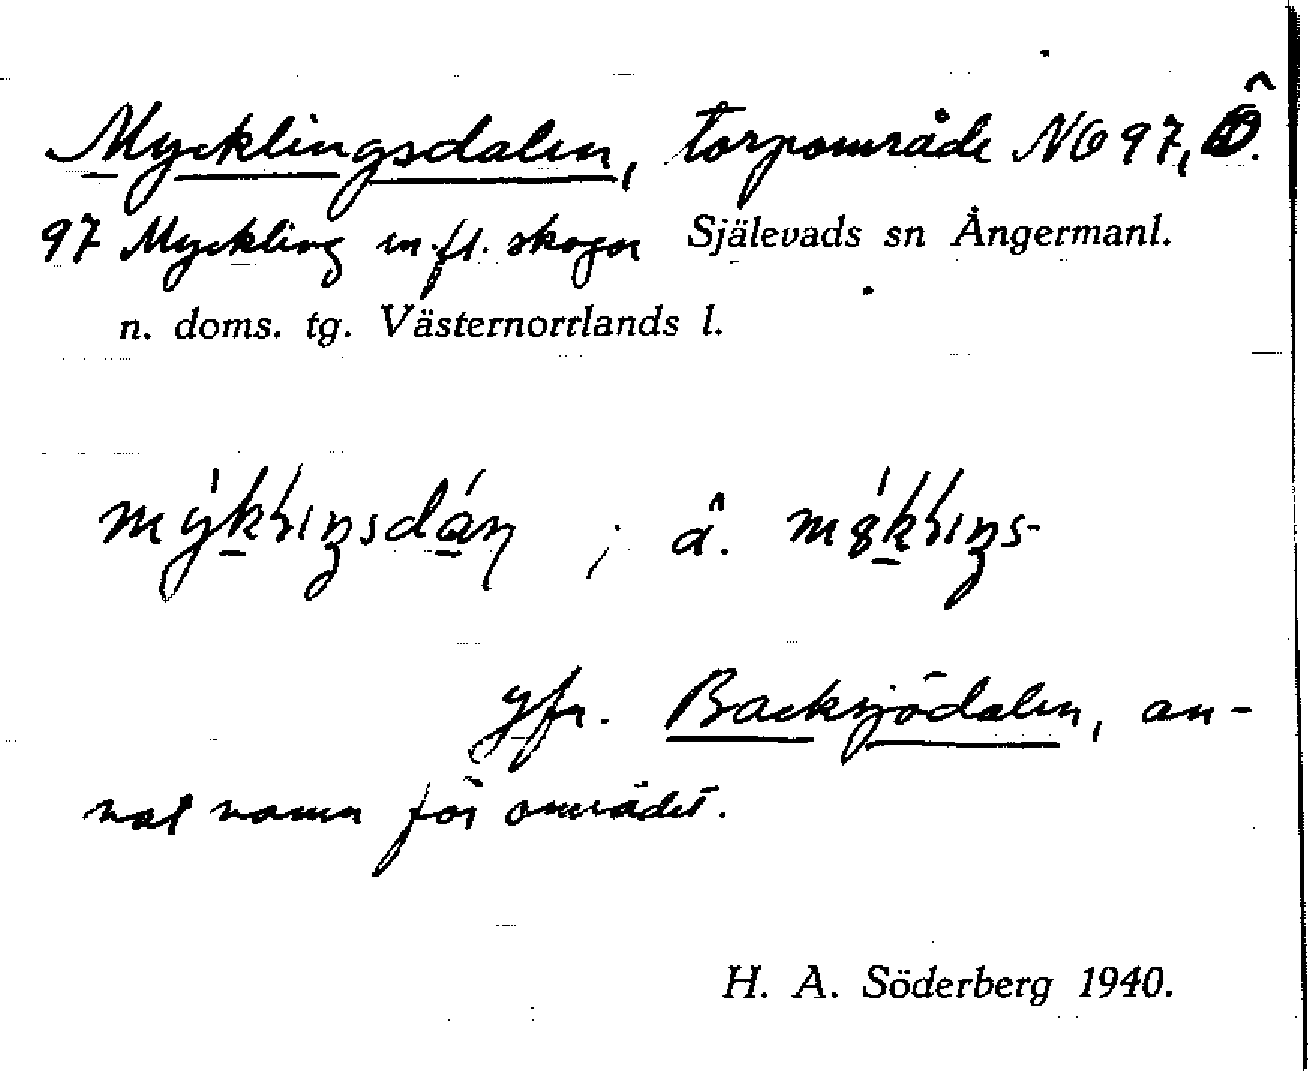 Mycklingsdalen, torpområde NO 97, Ö.
97 Myckling m.fl. skogar Själevads sn Ångermanl.
n. doms. tg. Västernorrlands l.
; â.
Jfr. Backsjödalen, an-
nat namn för området.
H. A. Söderberg 1940.